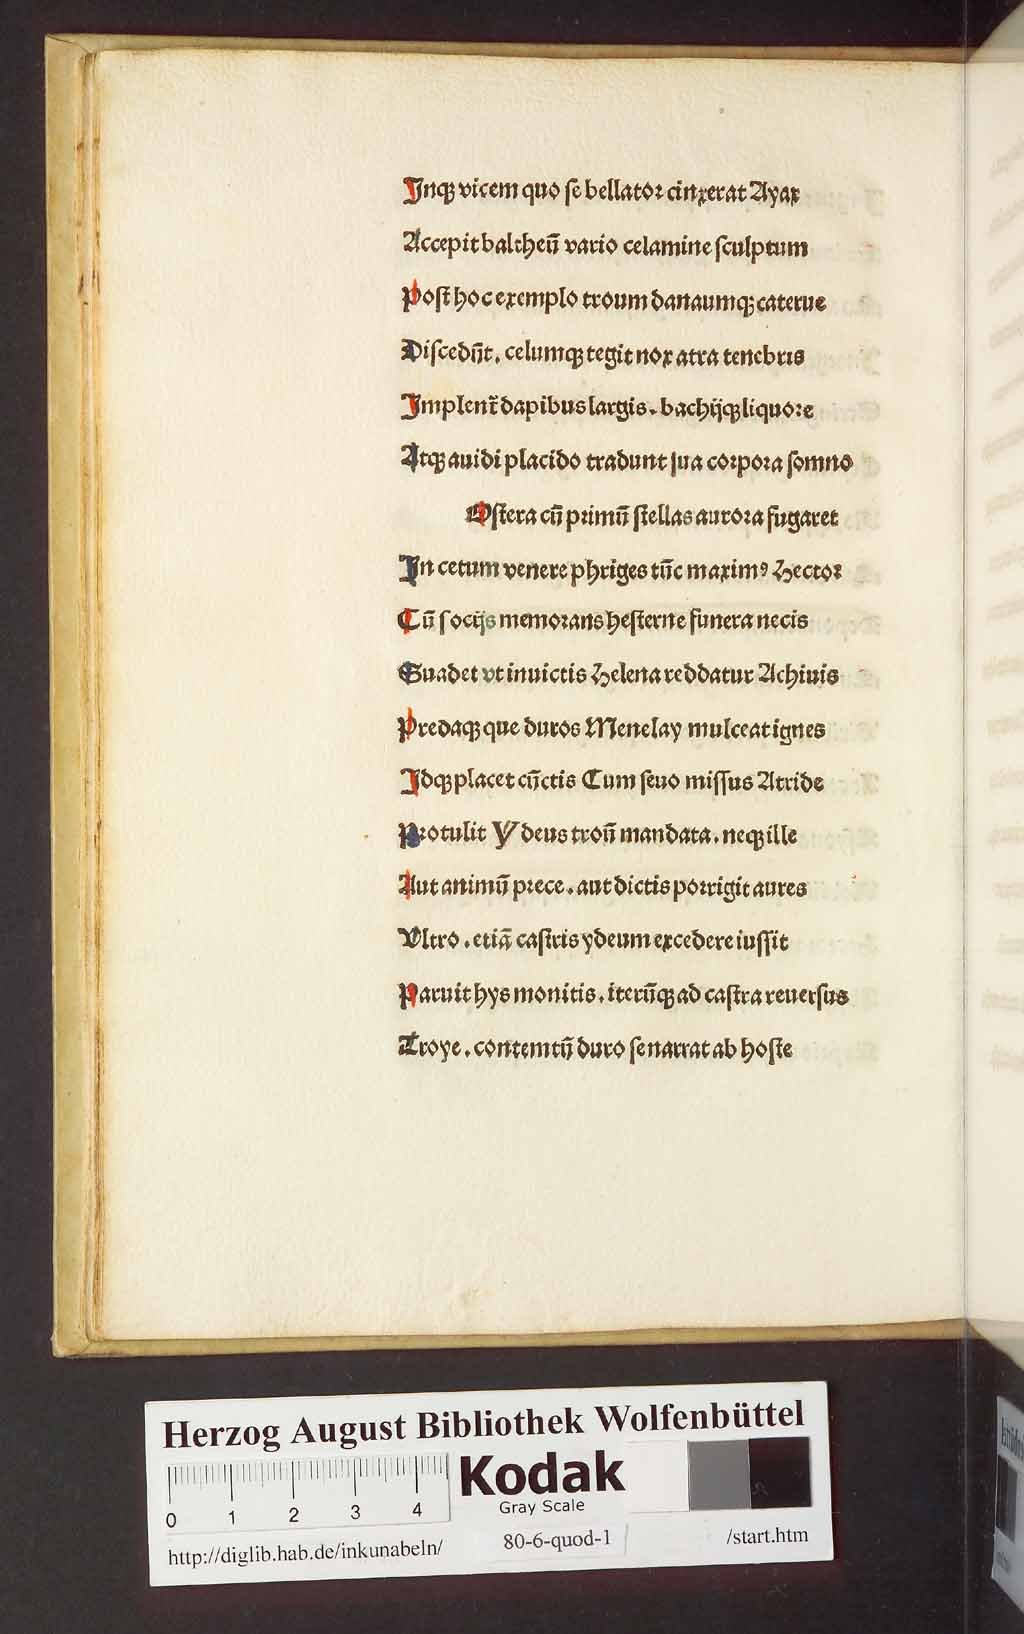 Jnqꝫ vicem quo ſe bellatoꝛ cinxerat Ayax
Accepit baltheū vario celamine ſculptum
Poſt hoc exemplo troum danaumqꝫ caterue
Diſcedūt. celumqꝫ tegit nox atra tenebris
Jmplent᷑ dapibus largis. bachijqꝫ liquoꝛe
Atqꝫ auidi placido tradunt ſua coꝛpoꝛa ſomno
Oſtera cū pꝛimū ſtellas auroꝛa fugaret
Jn cetum venere phriges tūc maximꝰ Hectoꝛ
Cū ſocijs memoꝛans heſterne funera necis
Suadet vt inuictis Helena reddatur Achiuis
Predaqꝫ que duros Menelay mulceat ignes
Jdqꝫ placet cūctis Cum ſeuo miſſus Atride
Pꝛotulit Ydeus troū mandata. neqꝫ ille
Aut animū pꝛece. aut dictis poꝛrigit aures
Vltro. etiā caſtris ydeum excedere iuſſit
Paruit hys monitis. iterūqꝫ ad caſtra reuerſus
Troye. contemtū duro ſe narrat ab hoſte
Herzog August Bibliothek Wolfenbüttel
Kodak
Gray Scale
0 1 2 3 4
http://diglib.hab.de/inkunabeln/ 80-6-quod-1 /start.htm